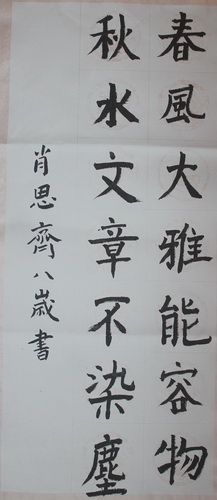 春風大雅能容物
秋水文章不染塵
肖思齊八歲書